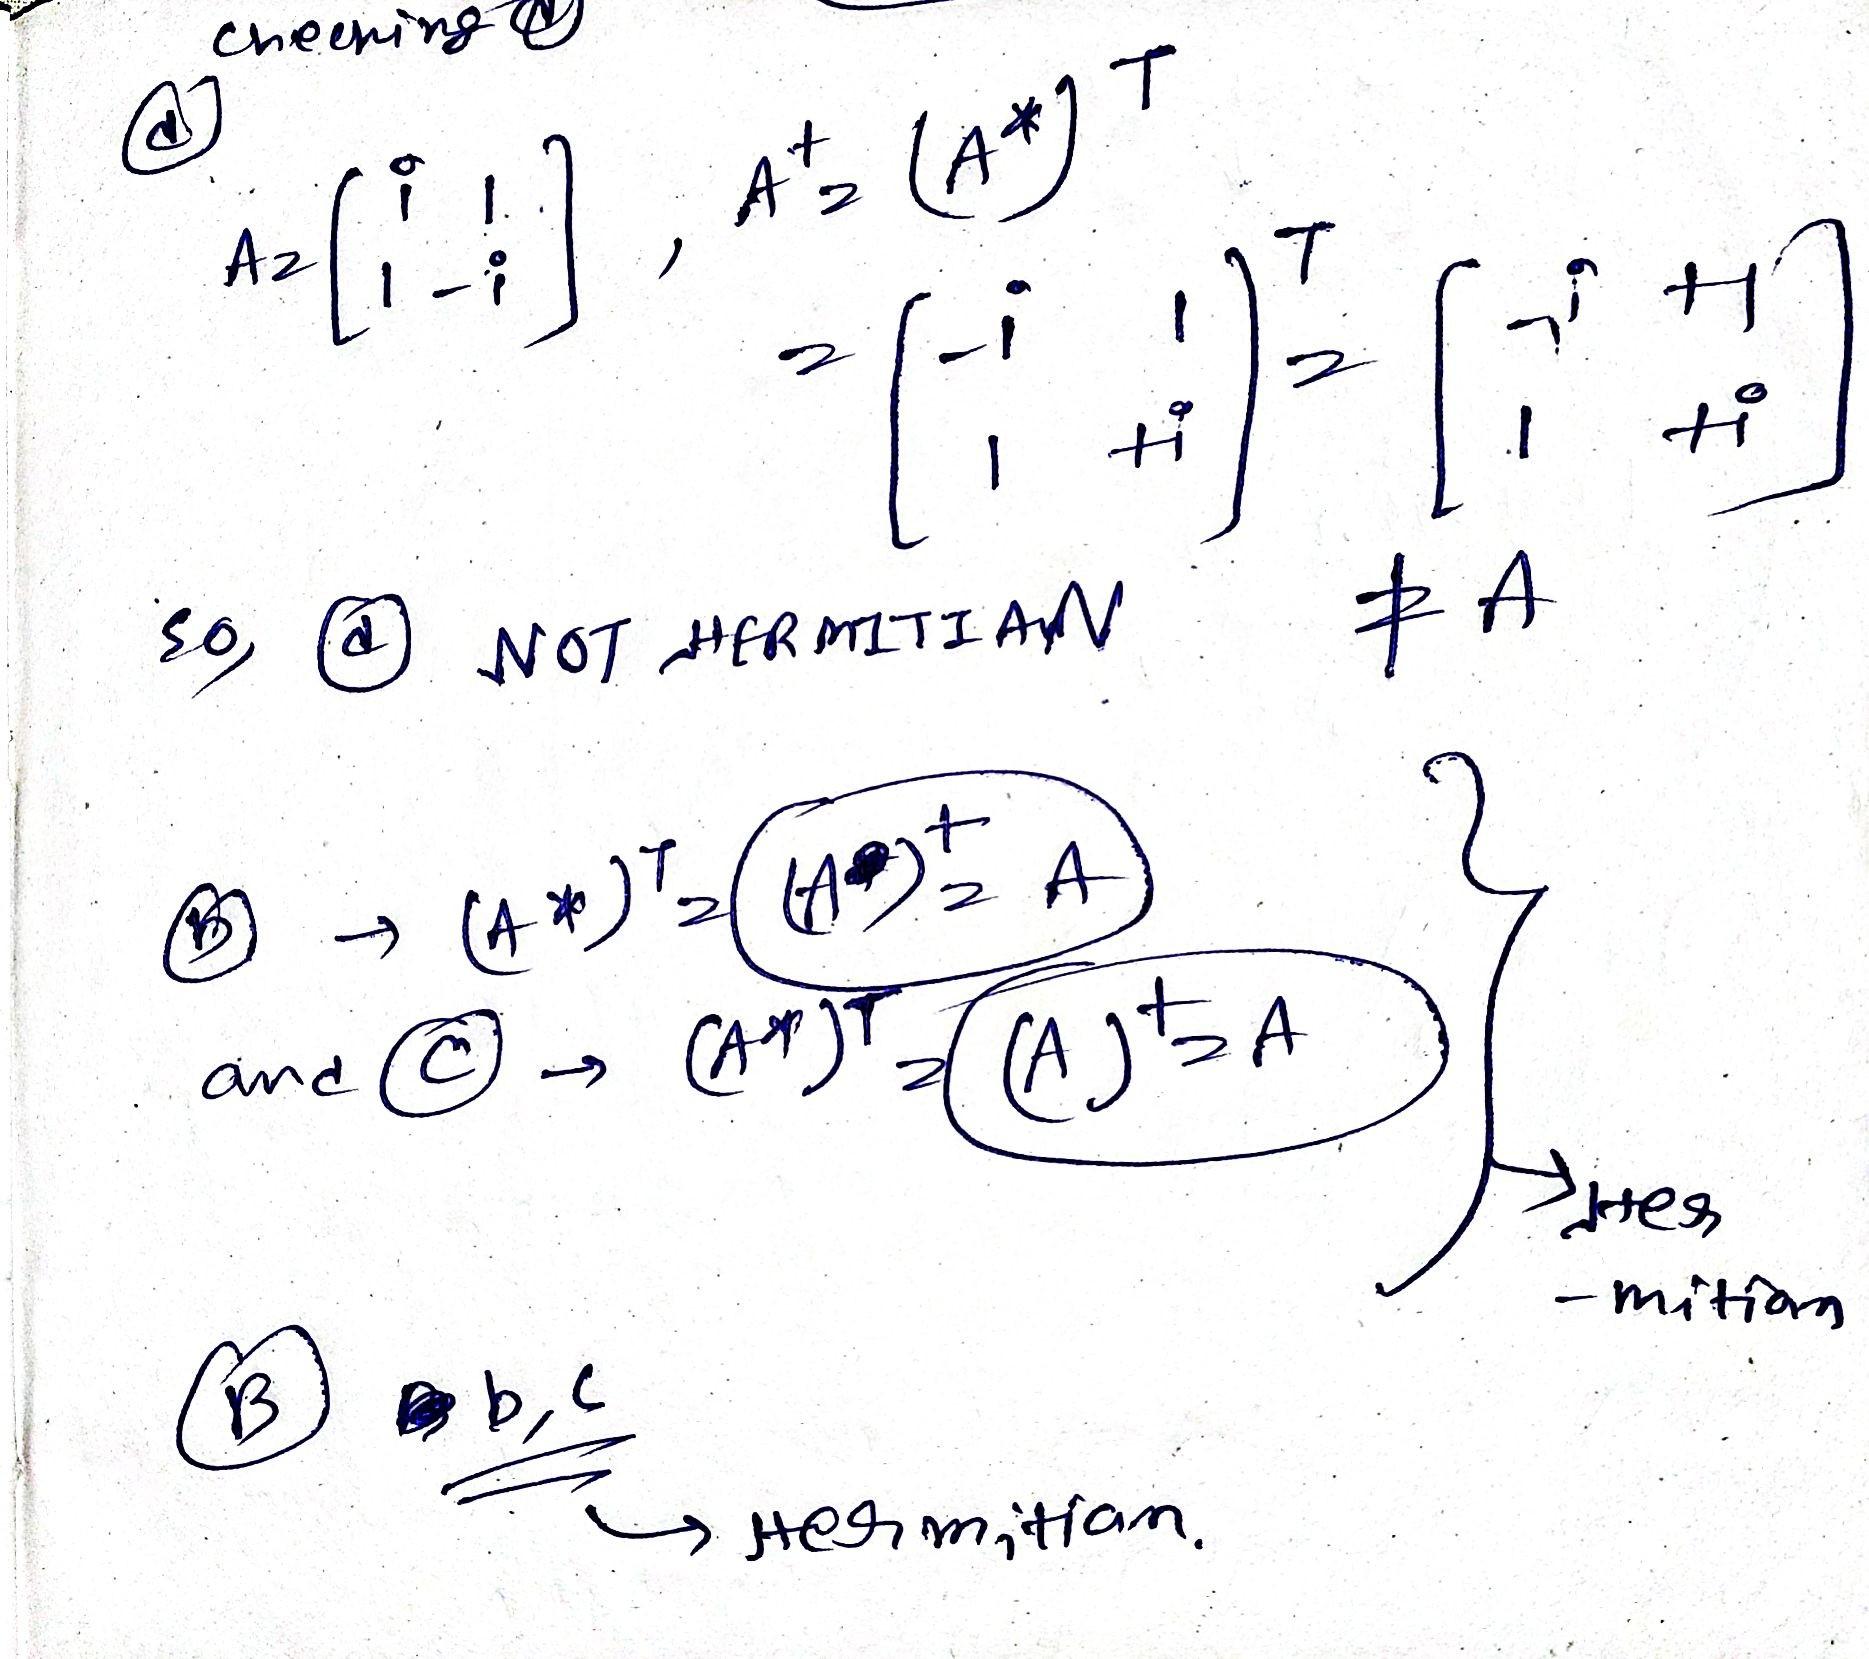 checking (d)
(d)
A = [ i 1 ; 1 -i ] , A⁺ = (A*)ᵀ
= [ -i 1 ; 1 +i ]ᵀ = [ -i +1 ; 1 +i ]
≠ A
so, (d) NOT HERMITIAN
(B) → (A*)ᵀ = (A)⁺ = A
and (C) → (A*)ᵀ = (A)⁺ = A
} → Her
-mitian
(B) b, c
→ Hermitian.